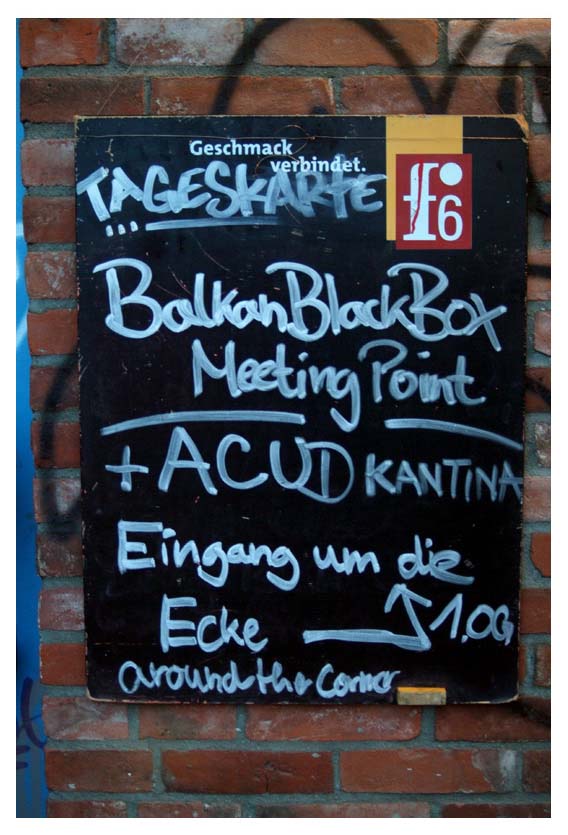 Geschmack
verbindet.
TAGESKARTE
f6
...
BalkanBlackBox
Meeting Point
+ ACUD KANTINA
Eingang um die
Ecke → 1.OG
around the corner